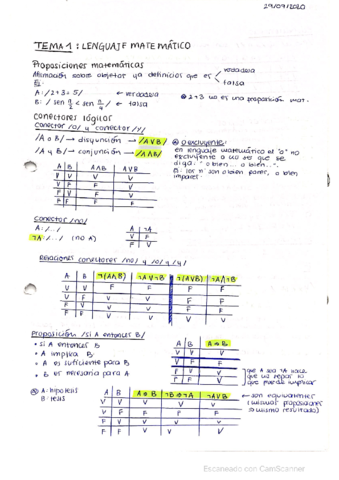 29/09/2020
TEMA 1: LENGUAJE MATEMÁTICO
Proposiciones matemáticas
Afirmación sobre objetos ya definidos que es verdadera
falsa
A: /2+3=5/ ← verdadera
2+3 no es una proposición mat.
B: / sen π/2 < sen π/4 / ← falsa
Conectores lógicos
Conector /o/ y conector /y/
/A o B/ → disyunción → /A∨B/
/A y B/ → conjunción → /A∧B/
O excluyente:
en lenguaje matemático el "o" no
excluyente a no ser que se
diga: "o bien... o bien...".
son o bien pares, o bien
impares
A B A∧B A∨B
V V V V
V F F V
F V F V
F F F F
Conector /no/
A: /../
¬A: /../ (no A)
A ¬A
V F
F V
Relaciones conectores /no/ y /o/ y /y/
A B ¬(A∧B) ¬A∨¬B ¬(A∨B) ¬A∧¬B
V V F F F F
V F V V F F
F V V V F F
F F V V V V
Proposición /si A entonces B/
• si A entonces B
• A implica B
• A es suficiente para B
• B es necesaria para A
A B A⇒B
V V V
V F F
F V V
F F V
que A no
que
A: hipótesis
B: tesis
A B A⇒B ¬B⇒¬A ¬A∨B
V V V V V
V F F F F
F V V V V
F F V V V
← son equivalentes
proposiciones
mismo resultado)
Escaneado con CamScanner